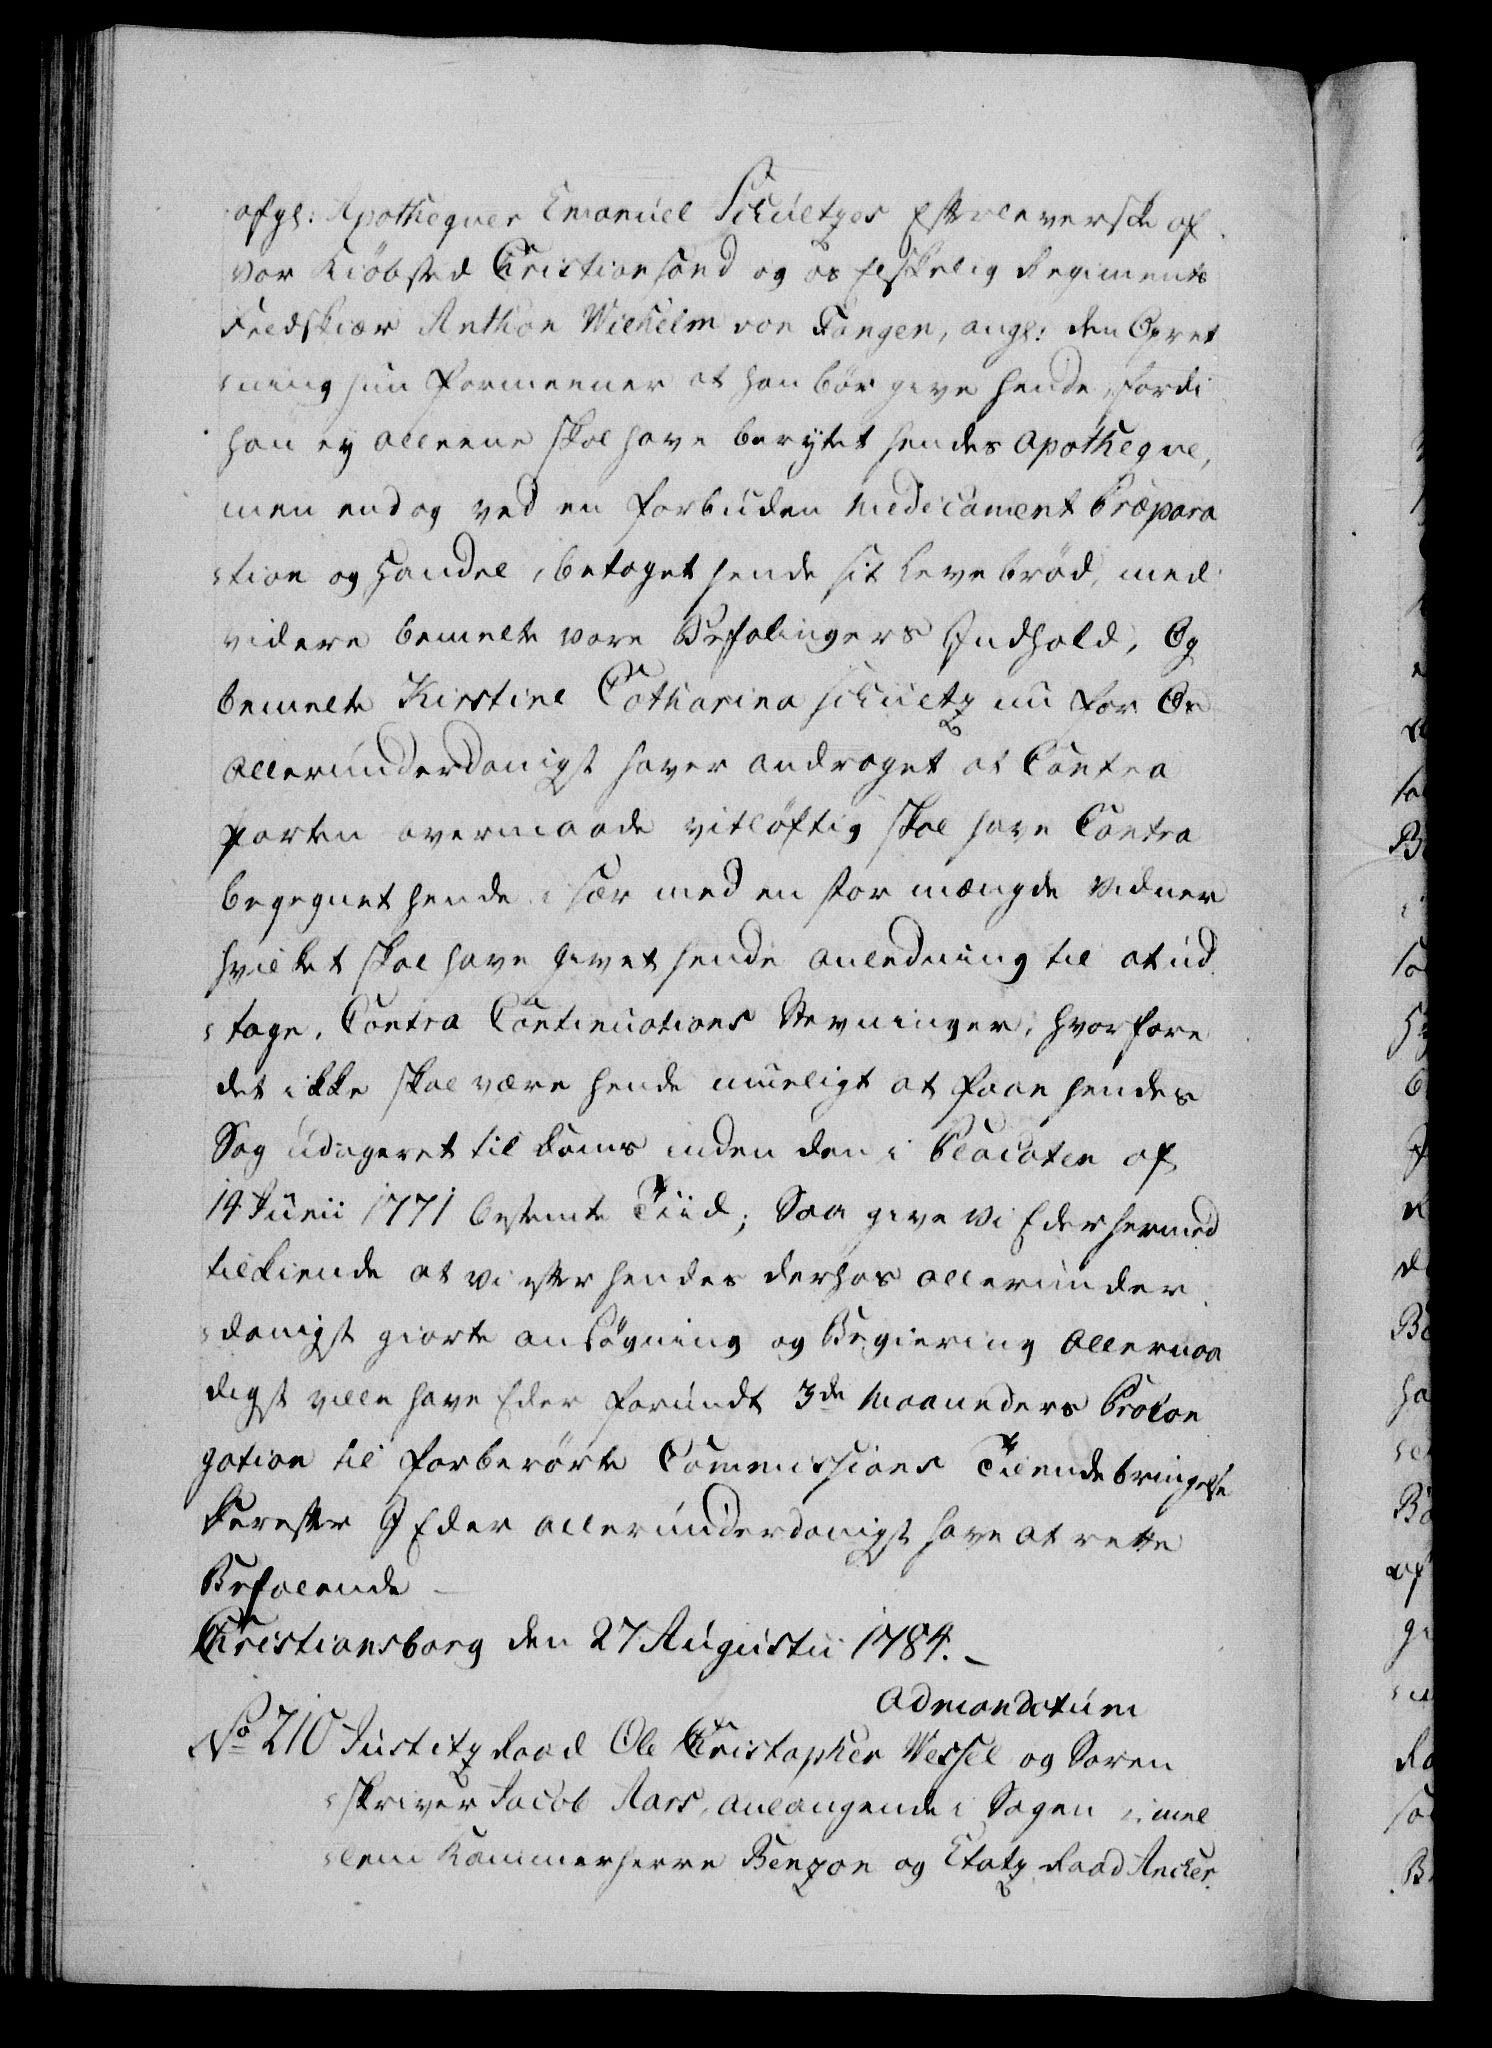 afgl: Apothequer Emanuel Schultzes Efterleverske af
vor Kiöbsted Christiansand og os Elskelig Regiments
Feldskiær Anthon Wilhelm von Fangen, angl: den Opret
ning hun formeener at han bör give hende, fordi
han ey alleene skal have berygtet hendes Apotheque,
men endog ved en forbuden Medicament Præpara
tion og Handel, betaget hende sit Levebröd, med
videre bemelte vore Befalingers Indhold, Og
bemelte Kirstine Catharina Schultz nu for Os
allerunderdanigst haver andraget at Contra
Parten overmaade vitlöftig skal have Contra
begegnet hende i sær med en stor mængde Vidner
hvilket skal have givet hende anledning til at ud
tage, Contra Continuations Stevninger, hvorfore
det ikke skal være hende mueligt at faae hendes
Sag udageret til Doms inden den i Placaten af
14 Junii 1771 bestemte Tiid; Saa give Vi Eder hermed
tilkiende at vi efter hendes derhos allerunder
danigst giorte ansögning og Begiering Allernaa
digst ville have Eder forundt 3de Maaneders Prolon
gation til forberörte Commissions Tilendebringelse
Derefter I Eder allerunderdanigst have at rette
Befalende
Christiansborg den 27 Augustii 1784.
Admandatum
No 210 Justitz Raad Ole Christopher Wessel og Soren
skriver Jacob Aars, anlangende i Sagen imel
lem Kammerherre Benzon og Etatz Raad Ancher.